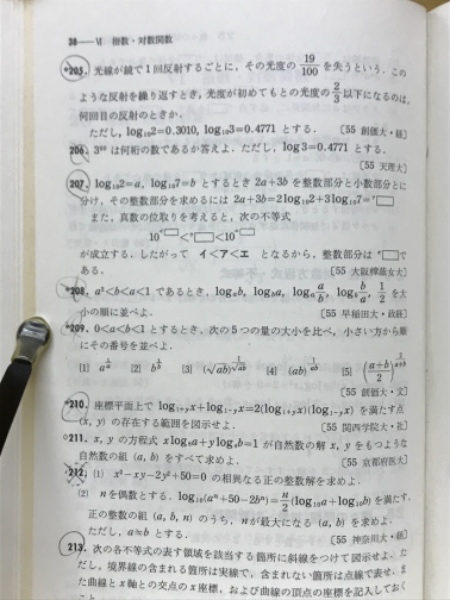 38——Ⅵ 指数・対数関数
*205. 光線が鏡で1回反射するごとに, その光度の 19/100 を失うという. この
ような反射を繰り返すとき, 光度が初めてもとの光度の 2/3 以下になるのは,
何回目の反射のときか.
ただし, log₁₀2=0.3010, log₁₀3=0.4771 とする. 〔55 創価大・経〕
206. は何桁の数であるか答えよ. ただし, log3=0.4771 とする.
〔55 天理大〕
207. log₁₀2=a, log₁₀7=b とするとき 2a+3b を整数部分と小数部分とに
分け, その整数部分を求めるには 2a+3b=2log₁₀2+3log₁₀7=□
また, 真数の位取りを考えると, 次の不等式
10^□<□<10^□
が成立する. したがって イ<ア<エ となるから, 整数部分は □で
ある. 〔55 大阪樟蔭女大〕
*208. a²<b<a<1 であるとき, logₐb, log_b a, logₐ a/b, log_b b/a, 1/2 を大
小の順に並べよ. 〔55 早稲田大・政経〕
*209. 0<a<b<1 とするとき, 次の5つの量の大小を比べ, 小さい方から順
にその番号を並べよ.
[1] a^(1/a) [2] b^(1/b) [3] (√ab)^(1/√ab) [4] (ab)^(1/ab) [5] ((a+b)/2)
〔55 創価大・文〕
*210. 座標平面上で log₁₊ᵧx+log₁₋ᵧx=2(log₁₊ᵧx)(log₁₋ᵧx) を満たす点
(x, y) の存在する範囲を図示せよ. 〔55 関西学院大・社〕
211. x, y の方程式 が自然数の解 x, y をもつような
自然数の組 (a, b) をすべて求めよ. 〔55 京都府医大〕
*212. (1) x²-xy-2y²+50=0 の相異なる正の整数解を求めよ.
(2) nを偶数とする. log₁₀(aⁿ+50-2bⁿ)=n/2(log₁₀a+log₁₀b) を満たす,
正の整数の組 (a, b, n) のうち, nが最大になる (a, b) を求めよ.
ただし, a≒b とする. 〔55 神奈川大・経〕
213. 次の各不等式の表す領域を該当する箇所に斜線をつけて図示せよ. た
だし, 境界線の含まれる箇所は実線で, 含まれない箇所は点線で表せ. ま
た曲線とx軸との交点のx座標, および曲線の頂点の座標を記入しておく